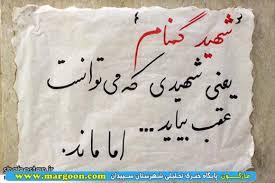 "شهید گمنام"
یعنی شهیدی که می‌توانست
عقب بیاید ... اما ماند.
مارگون: پایگاه خبری تحلیلی شهرستان سپیدان
www.margoon.com